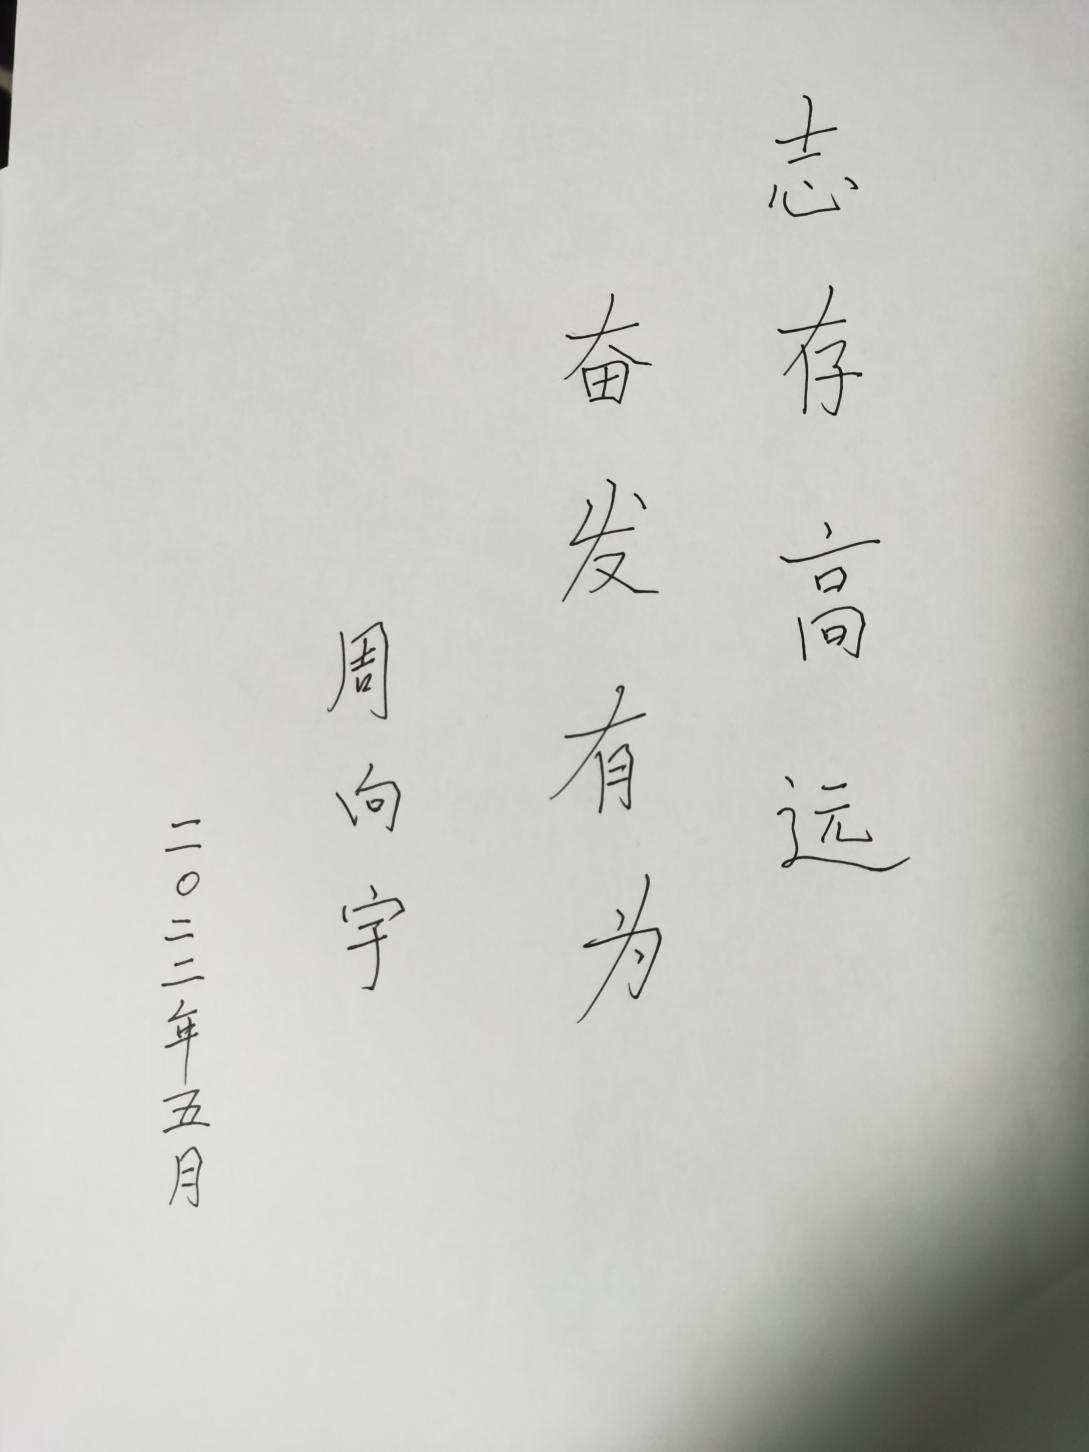 志存高远
奋发有为
周向宇
二〇二二年五月